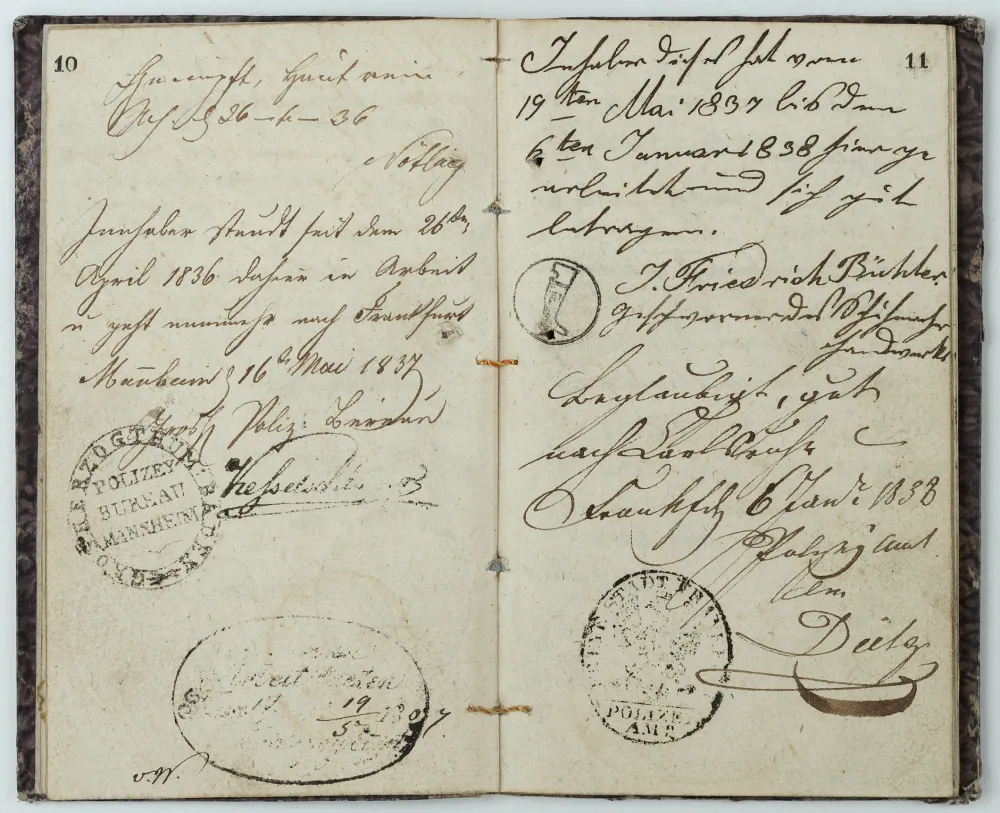 10
Geimpft, Haut rein
26 - 4 - 36
Nötling
Innhaber steudt seit dem 26ten
April 1836 dahier in Arbeit
u geht nunmehr nach Frankfurt
Mannheim 16 Mai 1837
Großh Poliz: Büreau
GROSHERZOGTHUM BADEN
POLIZEY
BUREAU
MANNHEIM
19
5
v. W.
11
Inhaber dieses hat vom
19ten Mai 1837 bis den
6ten Januar 1838 hier ge
arbeitet und sich gut
betragen.
J. Friedrich Büchler
geschworner des Schuhmacher
handwerks
Beglaubigt, gut
nach Carlsruhe
Frankfh 6 Janr 1838
Polizey Amt
STADT FR
POLIZEI
AMT